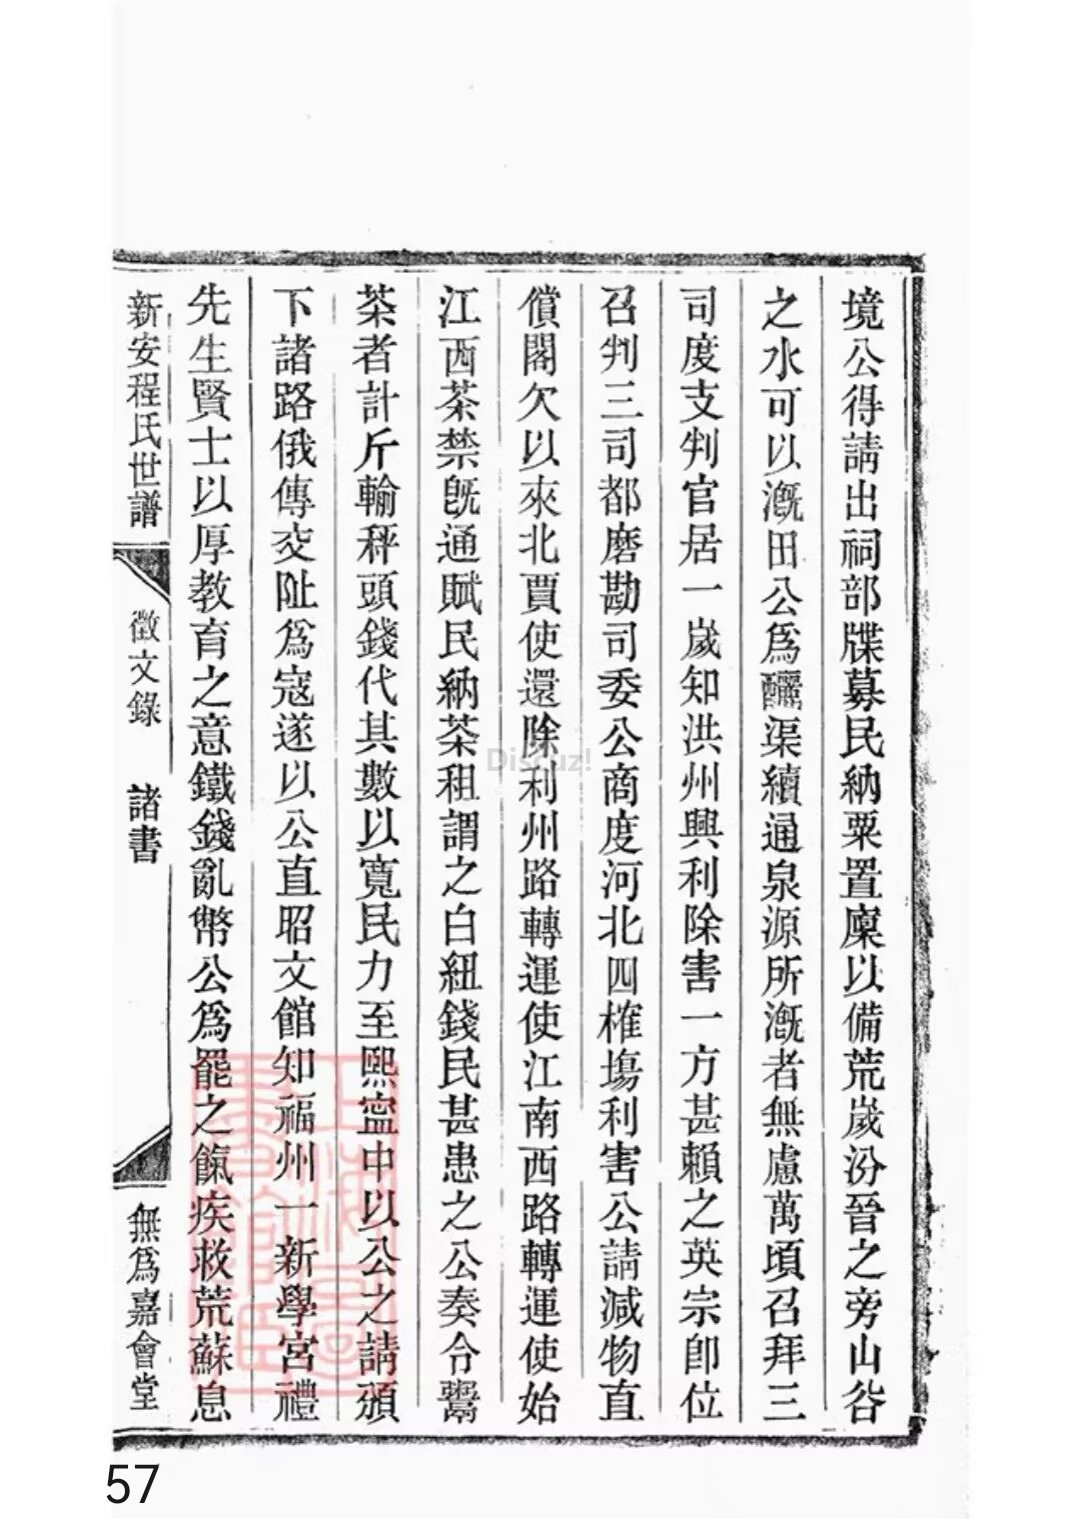 境公得請出祠部牒募民納粟置廩以備荒嵗汾晉之旁山谷
之水可以漑田公爲釃渠續通泉源所漑者無慮萬頃召拜三
司度支判官居一嵗知洪州興利除害一方甚賴之英宗卽位
召判三司都磨勘司委公商度河北四榷塲利害公請減物直
償閣欠以來北賈使還除利州路轉運使江南西路轉運使始
江西茶禁旣通賦民納茶租謂之白紐錢民甚患之公奏令鬻
茶者計斤輸秤頭錢代其數以寬民力至熙寍中以公之請頒
下諸路俄傳交阯爲寇遂以公直昭文館知福州一新學宮禮
先生賢士以厚教育之意鐵錢亂幣公爲罷之餼疾救荒蘇息
新安程氏世譜
徵文錄
諸書
無爲嘉會堂
Discuz!
57